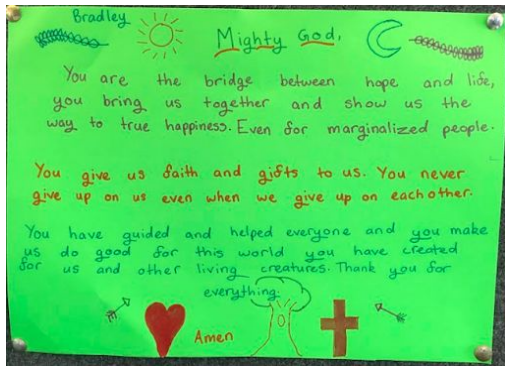 Bradley
Mighty God,
You are the bridge between hope and life,
you bring us together and show us the
way to true happiness. Even for marginalized people.
You give us faith and gifts to us. You never
give up on us even when we give up on each other.
You have guided and helped everyone and you make
us do good for this world you have created
for us and other living creatures. Thank you for
everything.
Amen